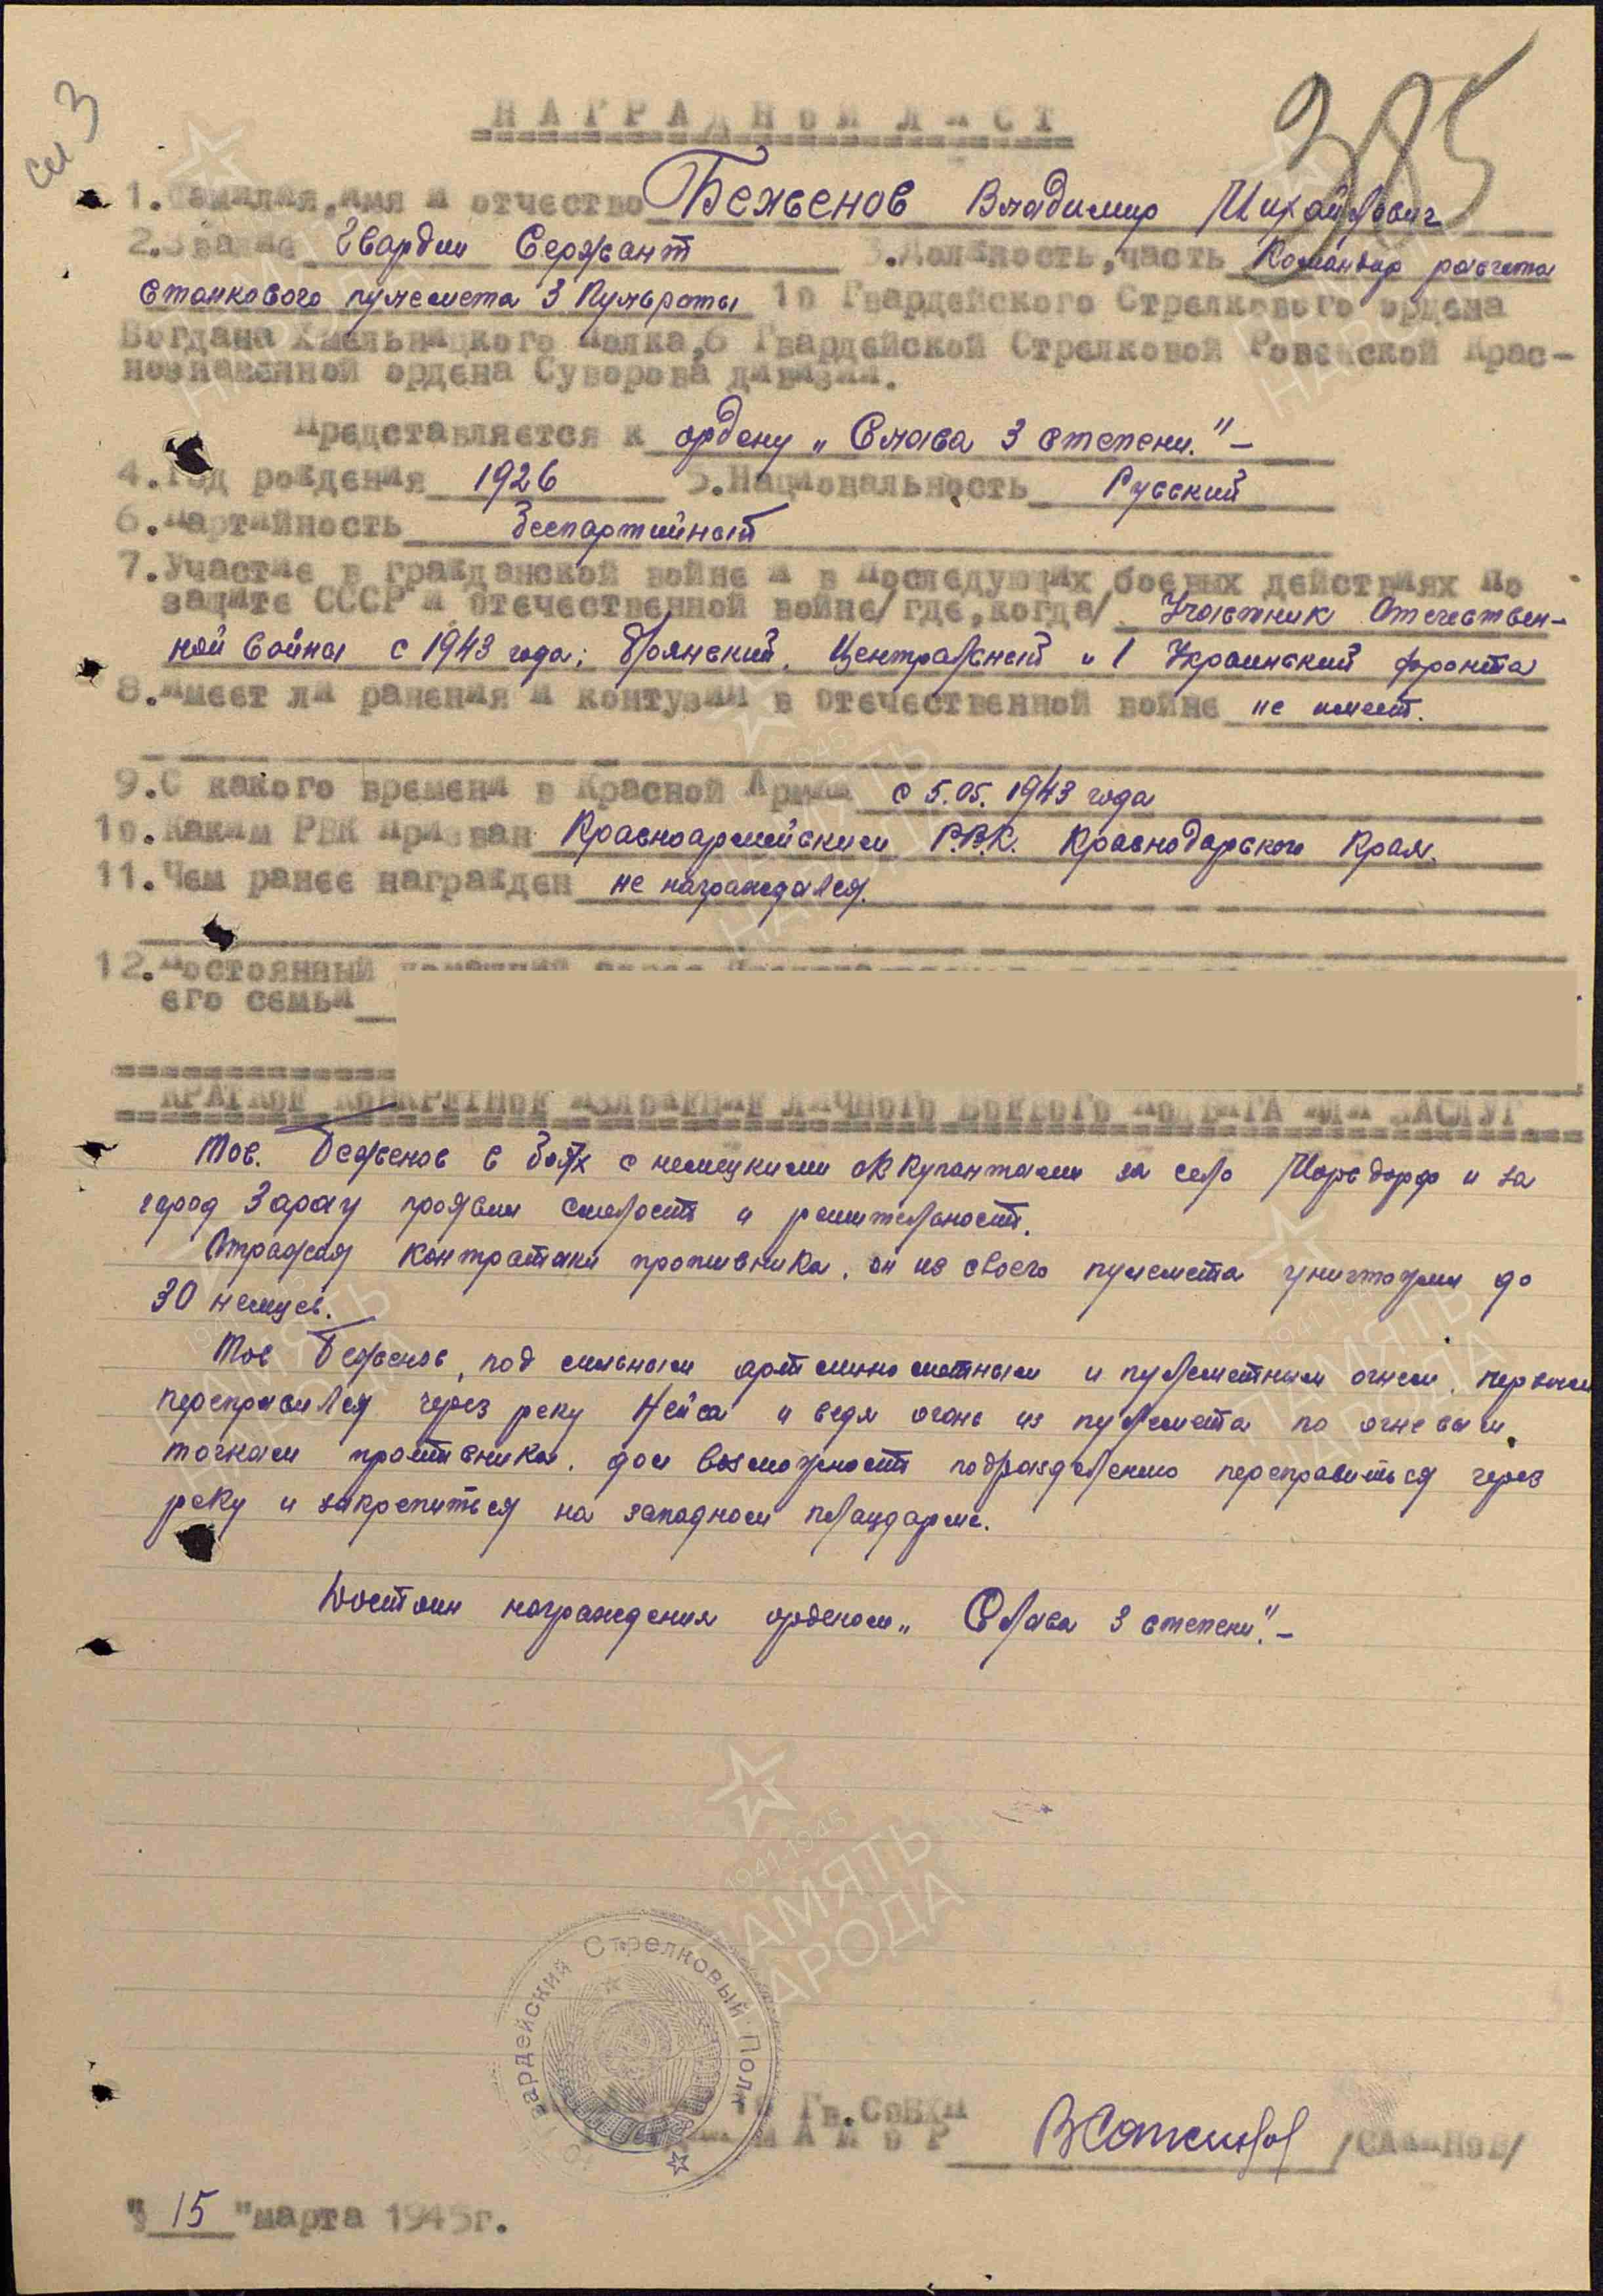 385
НАГРАДНОЙ ЛИСТ
1. Фамилия, имя и отчество Беженов Владимир Михайлович
2. Звание Гвардии Сержант 3. Должность, часть Командир расчета
станкового пулемета 3 Пульроты 10 Гвардейского Стрелкового ордена
Богдана Хмельницкого полка, 6 Гвардейской Стрелковой Ровенской Крас-
нознаменной ордена Суворова дивизии.
Представляется к ордену „Слава 3 степени."-
4. Год рождения 1926 5. Национальность Русский
6. Партийность беспартийный
7. Участие в гражданской войне и в последующих боевых действиях по
защите СССР и отечественной войне/где, когда/ Участник Отечествен-
ной войны с 1943 года; Брянский, Центральный и 1 Украинский фронта
8. Имеет ли ранения и контузии в отечественной войне не имеет.
9. С какого времени в Красной Армии с 5.05.1943 года
10. Каким РВК призван Красноармейским Р.В.К. Краснодарского Края.
11. Чем ранее награжден не награждался.
12. Постоянный домашний адрес
его семьи
КРАТКОЕ КОНКРЕТНОЕ ИЗЛОЖЕНИЕ ЛИЧНОГО БОЕВОГО ПОДВИГА ИЛИ ЗАСЛУГ
Тов. Беженов в боях с немецкими оккупантами за село и за
город Зарау проявил смелость и решительность.
Отражая контратаки противника, он из своего пулемета уничтожил до
30 немцев.
Тов Беженов, под сильным артминометным и пулеметным огнем, первым
переправился через реку Нейса и ведя огонь из пулемета по огневым
точкам противника, дал возможность подразделению переправиться через
реку и закрепиться на западном плацдарме.
Достоин награждения орденом „Слава 3 степени".-
Гвардейский Стрелковый Полк
10 Гв. СОБХП
МАЙОР /САЖИНОВ/
"15" марта 1945г.
1941-1945
ПАМЯТЬ
НАРОДА